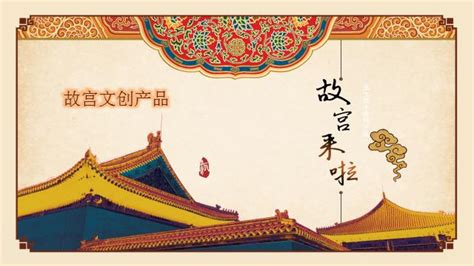 故宫文创产品
故宫来啦